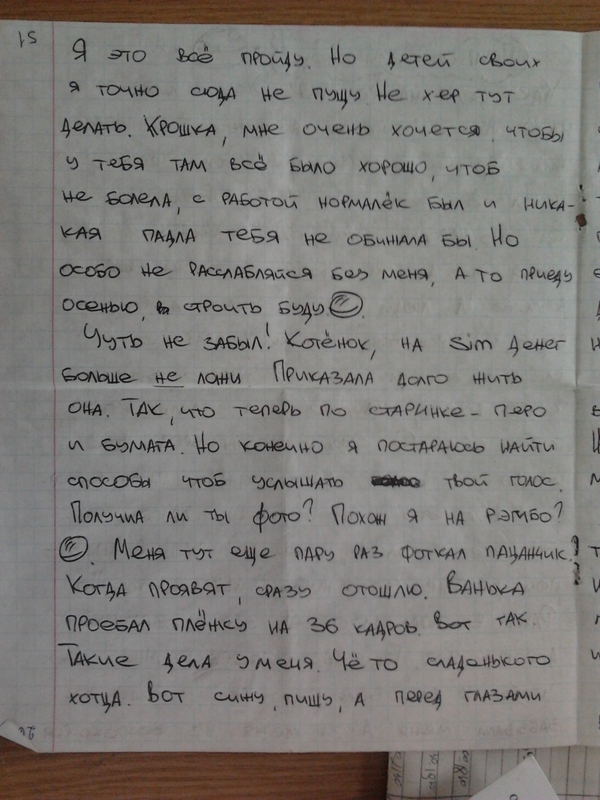 51
Я это всё пройду. Но детей своих
я точно сюда не пущу Не хер тут
делать. Крошка, мне очень хочется, чтобы
у тебя там всё было хорошо, чтоб
не болела, с работой нормалёк был и ника-
кая падла тебя не обижала бы. Но
особо не расслабляйся без меня, а то приеду
осенью, строить буду
Чуть не забыл! Котёнок, на sim денег
больше не ложи Приказала долго жить
она. Так, что теперь по старинке - перо
и бумага. Но конечно я постараюсь найти
способы чтоб услышать твой голос.
Получила ли ты фото? Похож я на Рэмбо?
Меня тут еще пару раз фоткал пацанчик.
Когда проявят, сразу отошлю. Ванька
проебал плёнку на 36 кадров. Вот так.
Такие дела у меня. Чё то сладенького
хотца. Вот сижу, пишу, а перед глазами